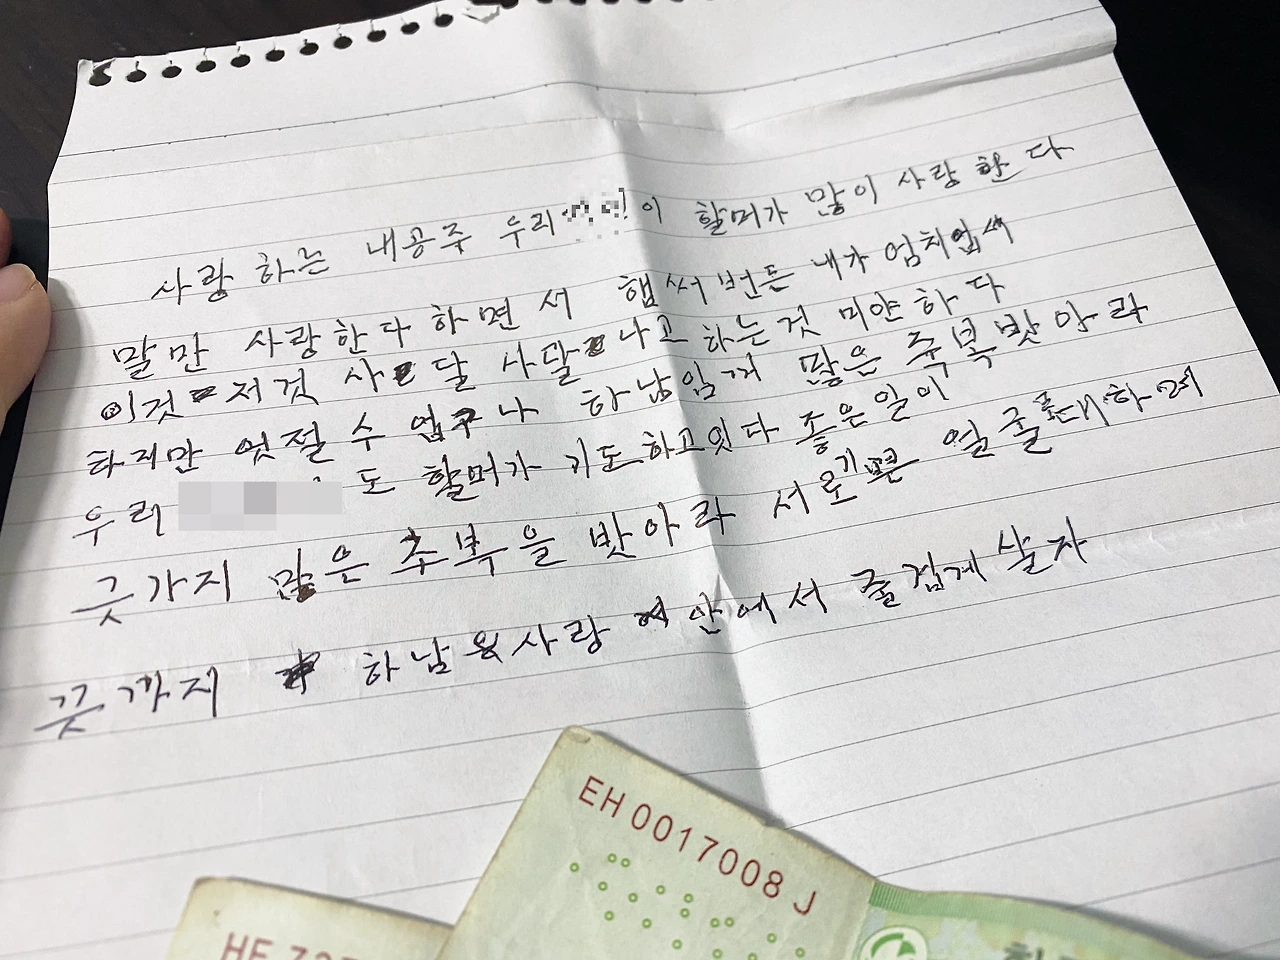 사랑하는 내공주 우리 이 할머가 많이 사랑한다
말만 사랑한다 하면서 햅써번든 내가 엄치업시
이것 저것 사달 사달나고 하는것 미얀하다
하지만 엇절수 업구나 하남임꺼 많은 축복밧아라
우리 도 할머가 기도하고잇다 좋은일이
긋가지 많은 추복을 밧아라 서로기쁜 일 줄
끗까지 하남 사랑 안에서 즐겁게 살자
EH 0017008 J
HF